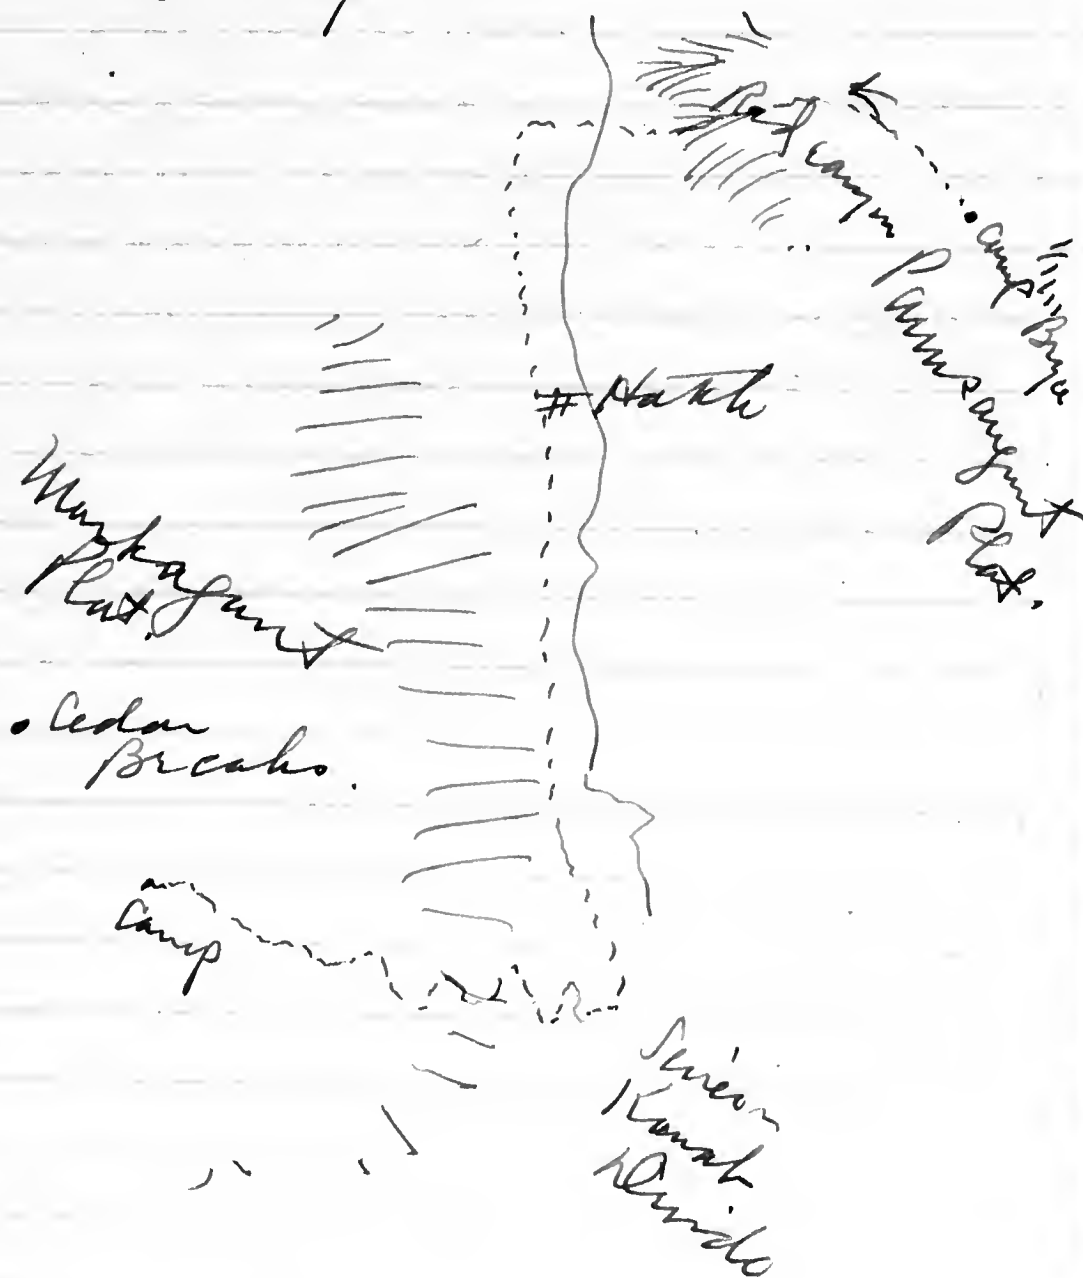 Red canyon
Camp Bryce
Paunsaugunt
Plat.
Hatch
Markagunt
Plat.
Cedar
Breaks.
Camp
Sevier
Kanab
Divide